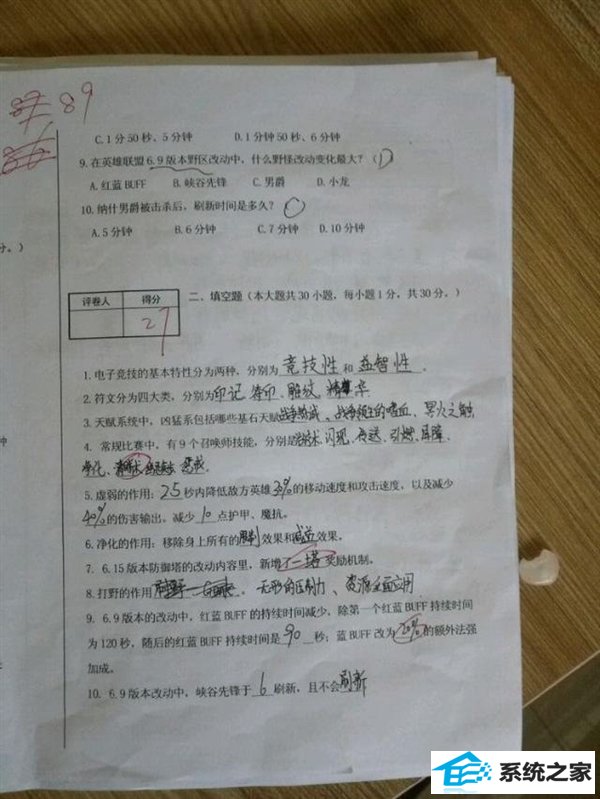 89
C.1分50秒、5分钟 D.1分钟50秒、6分钟
9.在英雄联盟6.9版本野区改动中，什么野怪改动变化最大？（D）
A.红蓝BUFF B.峡谷先锋 C.男爵 D.小龙
10.纳什男爵被击杀后，刷新时间是多久？
A.5分钟 B.6分钟 C.7分钟 D.10分钟
分。）
评卷人 得分
27
二、填空题（本大题共30小题，每小题1分，共30分。）
1.电子竞技的基本特性分为两种，分别为 竞技性 和 益智性 。
2.符文分为四大类，分别为印记、符印、雕纹、精华
3.天赋系统中，凶猛系包括哪些基石天赋战争热诚、战争领主的嗜血、冥火之触
4. 常规比赛中，有9个召唤师技能，分别是治疗术、闪现、传送、引燃、屏障、
净化、惩戒
钟
5.虚弱的作用：2.5秒内降低敌方英雄30%的移动速度和攻击速度，以及减少
40%的伤害输出。减少10点护甲、魔抗。
6.净化的作用：移除身上所有的限制效果和减益效果。
7. 6.15版本防御塔的改动内容里，新增了一塔奖励机制。
8.打野的作用 无形的压制力、资源全面应用
9. 6.9版本的改动中，红蓝BUFF的持续时间减少，除第一个红蓝BUFF持续时间
为120秒，随后的红蓝BUFF持续时间是90秒；蓝BUFF改为20%的额外法强
加成。
10. 6.9版本改动中，峡谷先锋于 6 刷新，且不会刷新
系统之家